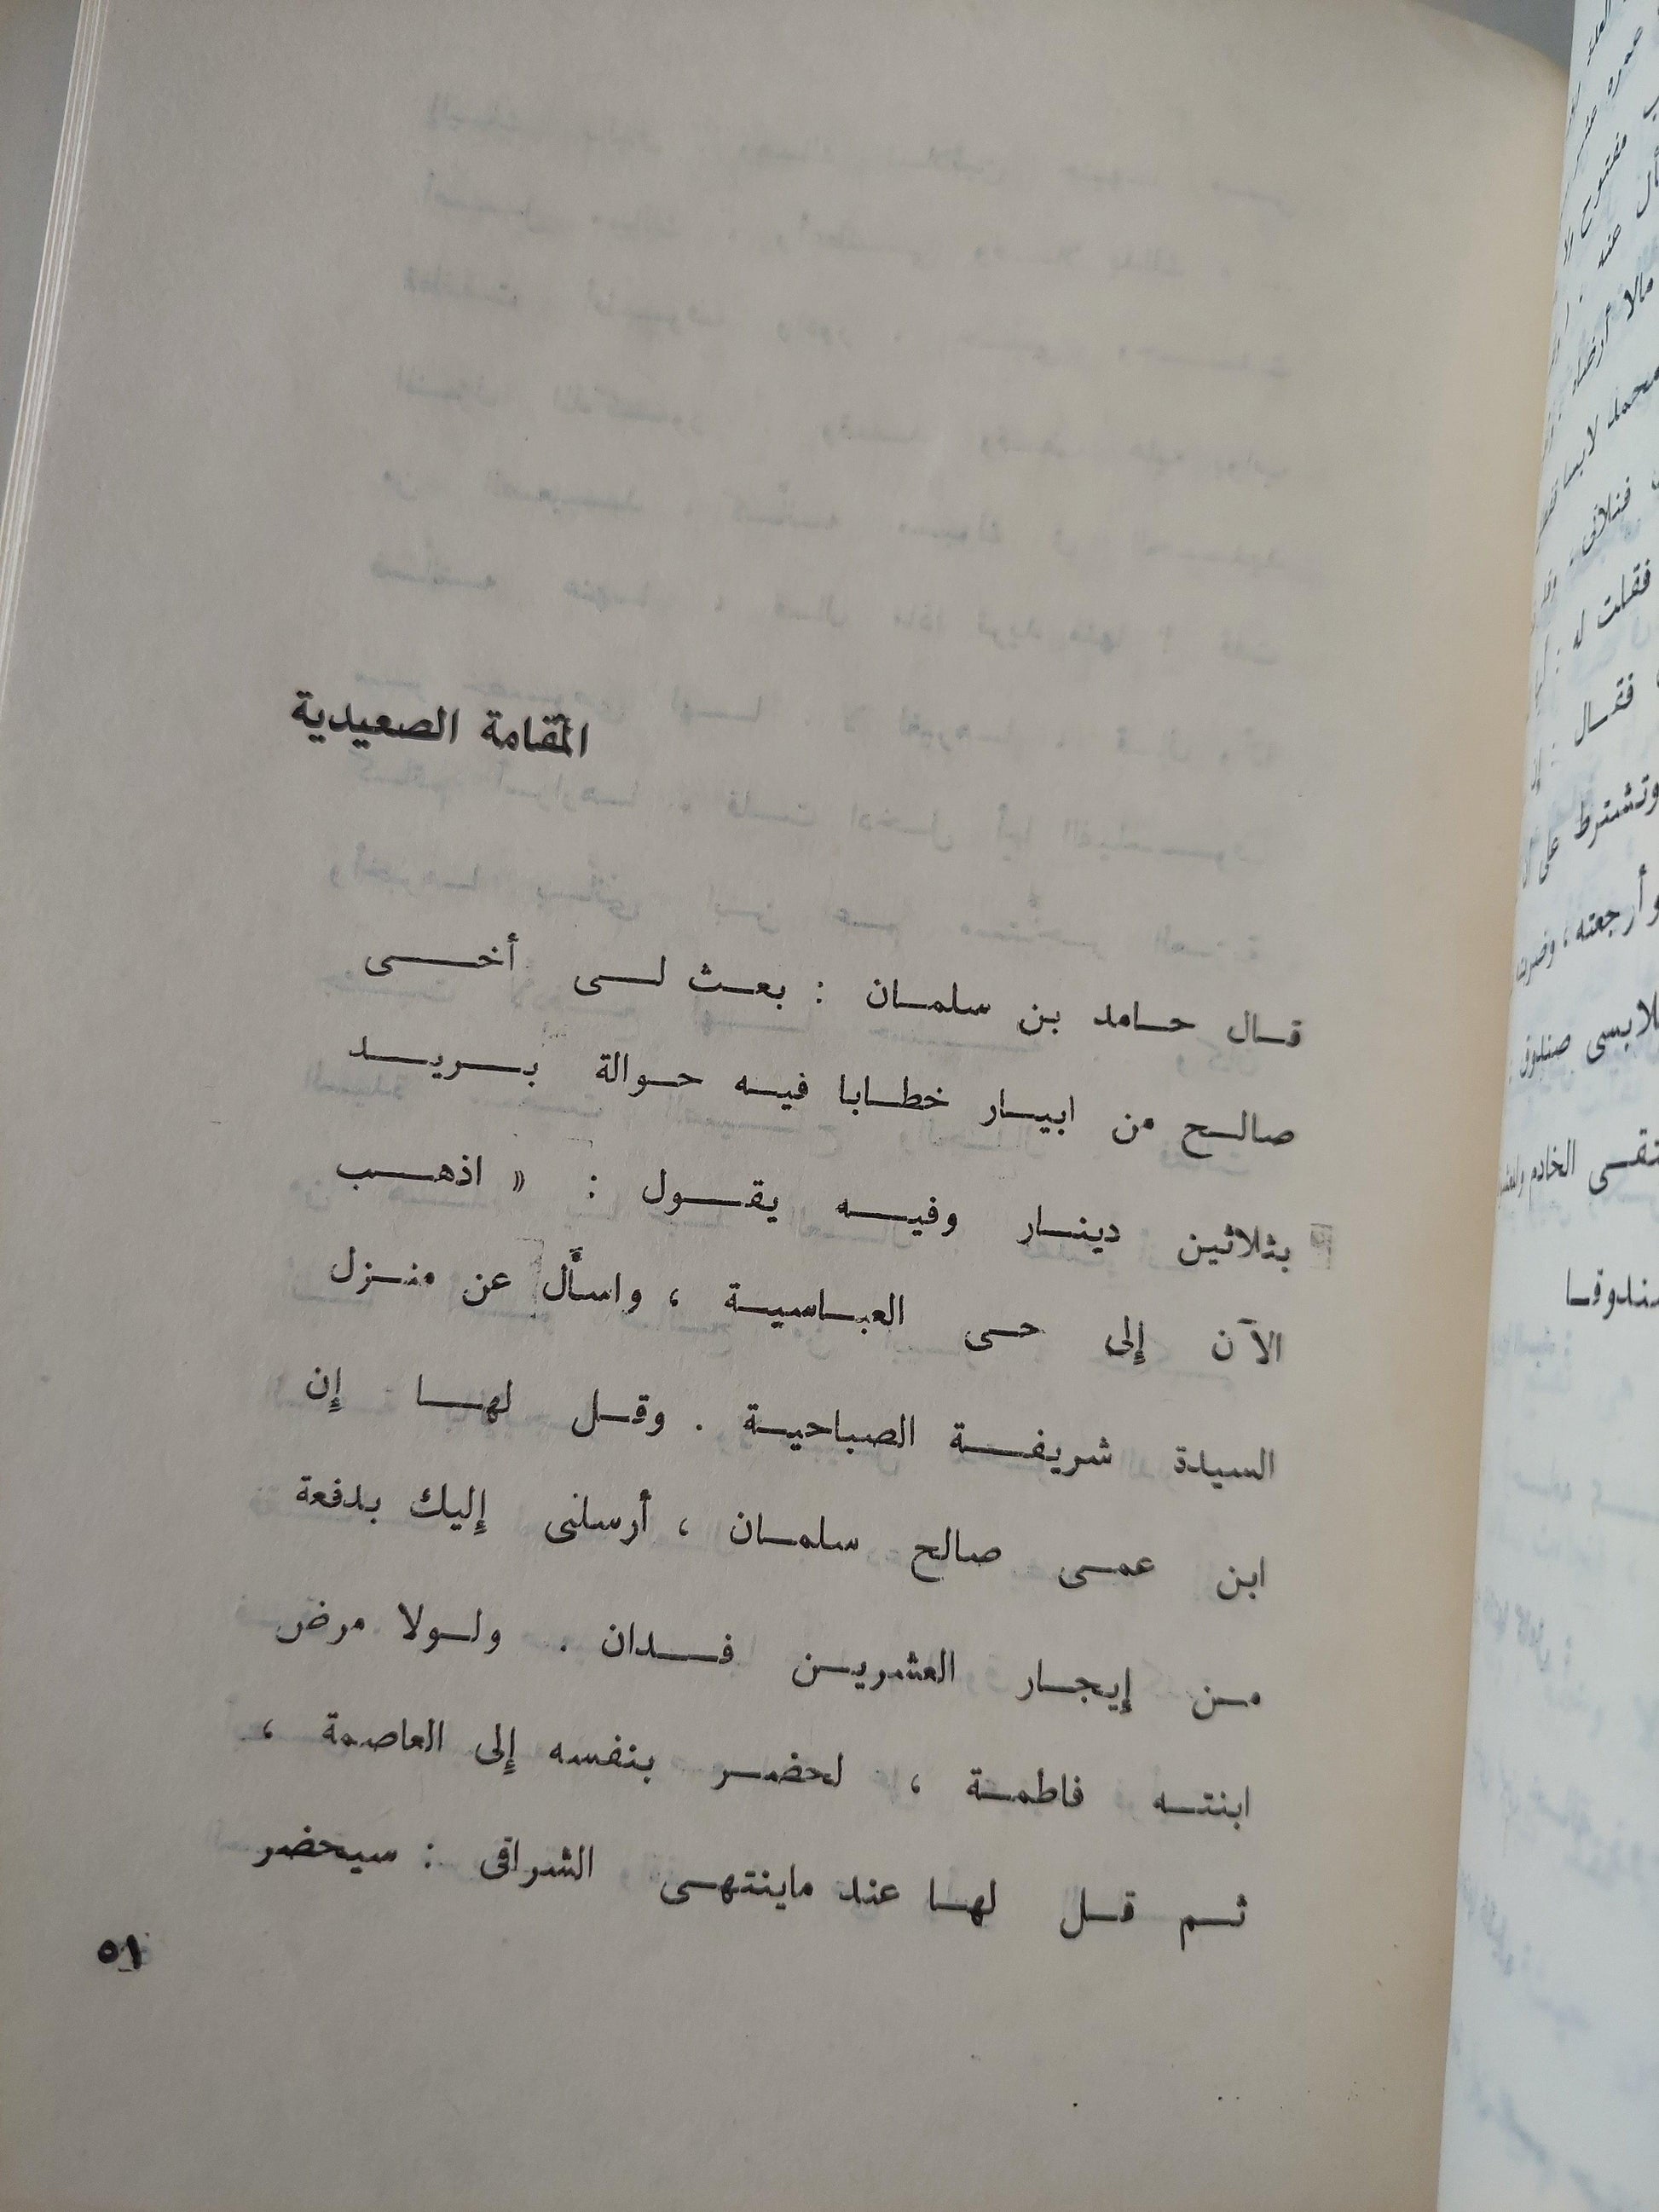 المقامة الصعيدية
قال حامد بن سلمان : بعث لى أخى
صالح من ابيار خطابا فيه حوالة بريد
بثلاثين دينار وفيه يقول : « اذهب
الآن إلى حى العباسية ، واسأل عن منزل
السيدة شريفة الصباحية . وقل لها إن
ابن عمى صالح سلمان ، أرسلنى إليك بدفعة
من إيجار العشرين فدان . ولولا مرض
ابنته فاطمة ، لحضر بنفسه إلى العاصمة ،
ثم قل لها عند ماينتهى الشراقى : سيحضر
٥١
فقلت له :
فقال :
وتشترط على